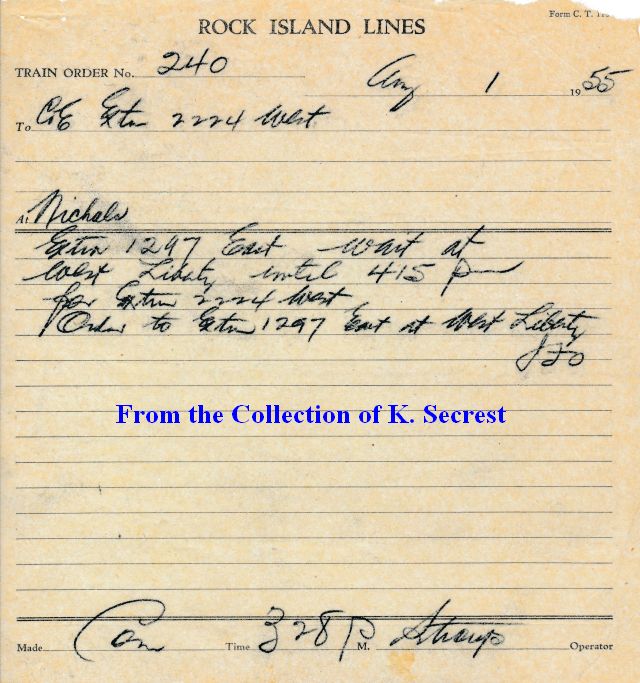 Form C. T.
ROCK ISLAND LINES
TRAIN ORDER No. 240
Aug 1 1955
To C&E Extra 2224 West
At Nichols
Extra 1297 East wait at
West Liberty until 415 p
for Extra 2224 West
Order to Extra 1297 East at West Liberty
From the Collection of K. Secrest
Made Com Time 328 P M. Operator